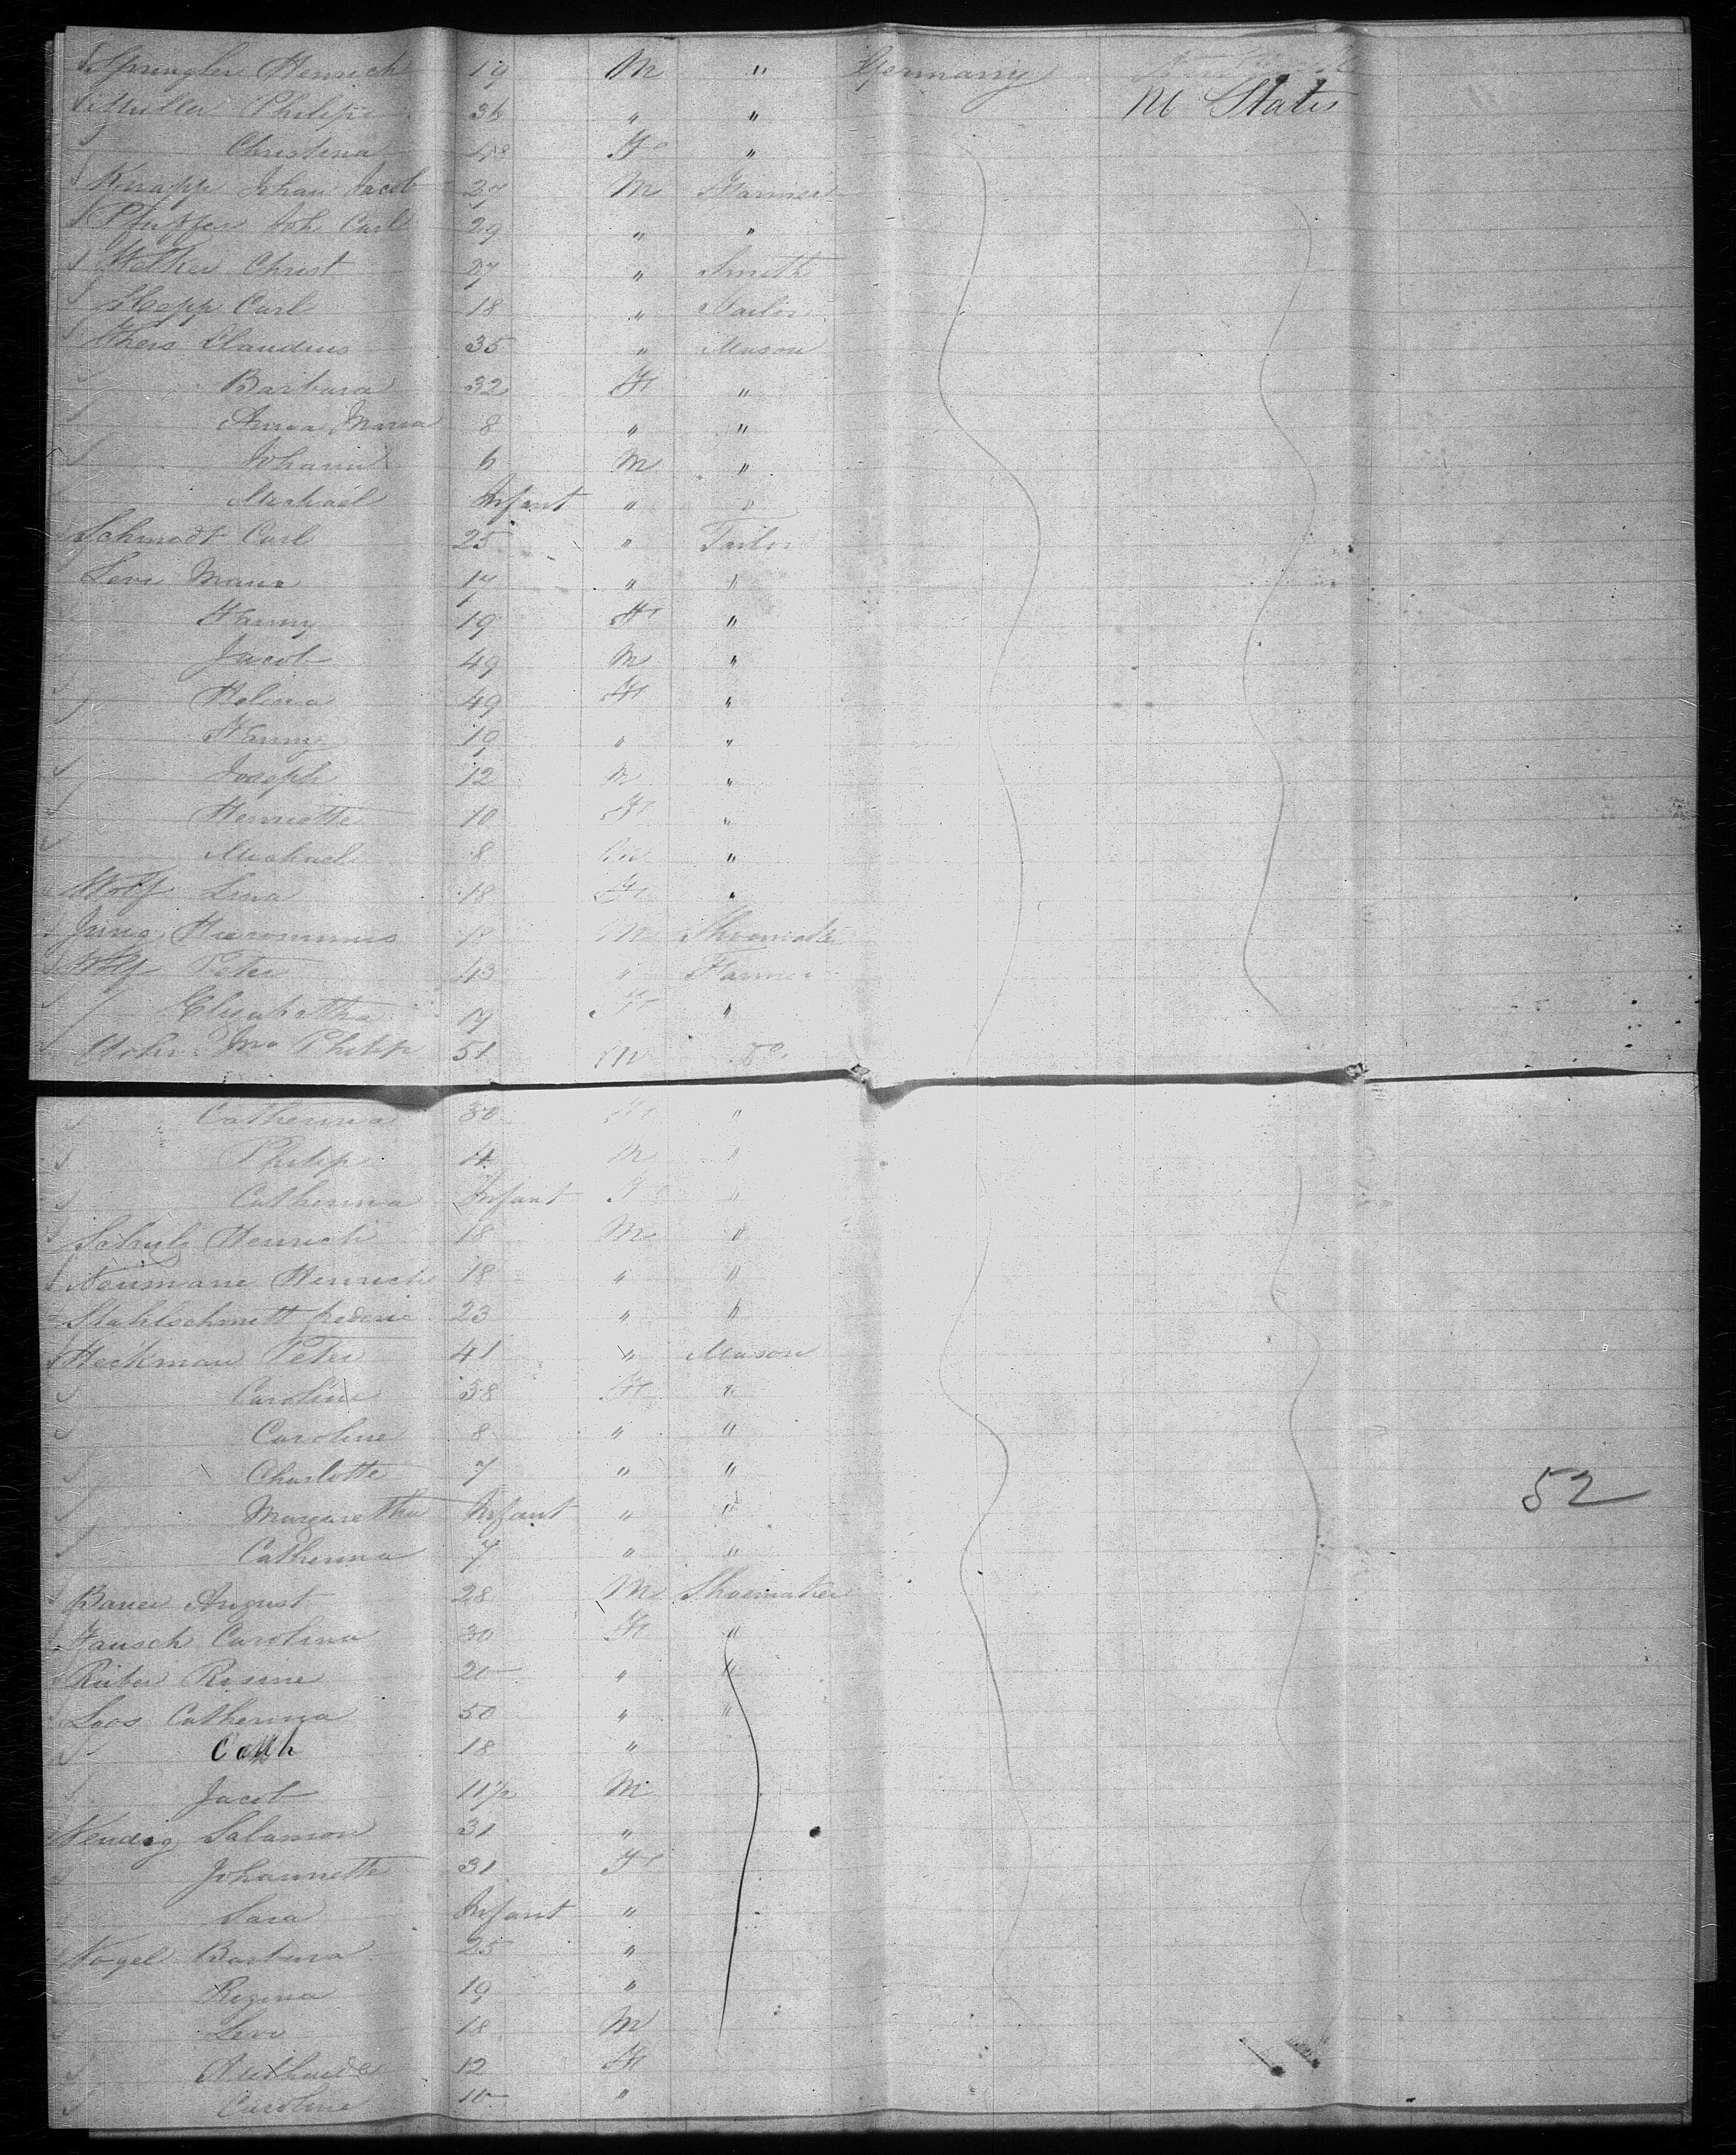 Springler Henrich 19 M " Germany
Muller Philipp 36 " " U States
Christina 48 F "
Knapp Johan Jacob 27 M Farmer
Pfeiffer Joh Carl 29 " "
Walther Christ 27 " Smith
Hepp Carl 18 " Tailor
Theis Claudius 35 " Mason
Barbara 32 F "
Anna Maria 8 " "
Johann 6 M "
Michael Infant " "
Schmidt Carl 25 " Tailor
Levi 17 " "
Fanny 19 F "
Jacob 49 M "
Helena 49 F "
Fanny 19 " "
Joseph 12 M "
Henriette 10 F "
Michael 8 M "
Wolf Lena 18 F "
Jung Hieronimus 18 M Shoemaker
Wolf Peter 43 " Farmer
Elizabetha 17 F "
Philipp 51 M Do
Catherina 30 F "
Philipp 4 M "
Catherina Infant F "
Schulz Henrich 18 M "
Neumane Henrich 18 " "
Stahlschmitt frederic 23 " "
Heckman Peter 41 " Mason
Caroline 38 F "
Caroline 8 " "
Charlotte 7 " "
52
Margaretha Infant " "
Catherina 7 " "
Bauer August 28 M Shoemaker
Jausch Carolina 30 F "
Rieber Rosine 20 " "
Loos Catherina 50 " "
Cath 18 "
Jacob 11½ M
Wendig Salamon 31 "
Johannette 31 F
Sara Infant "
Vogel Barbara 25 "
Regina 19 "
Levi 18 M
12 F
Caroline 10 "